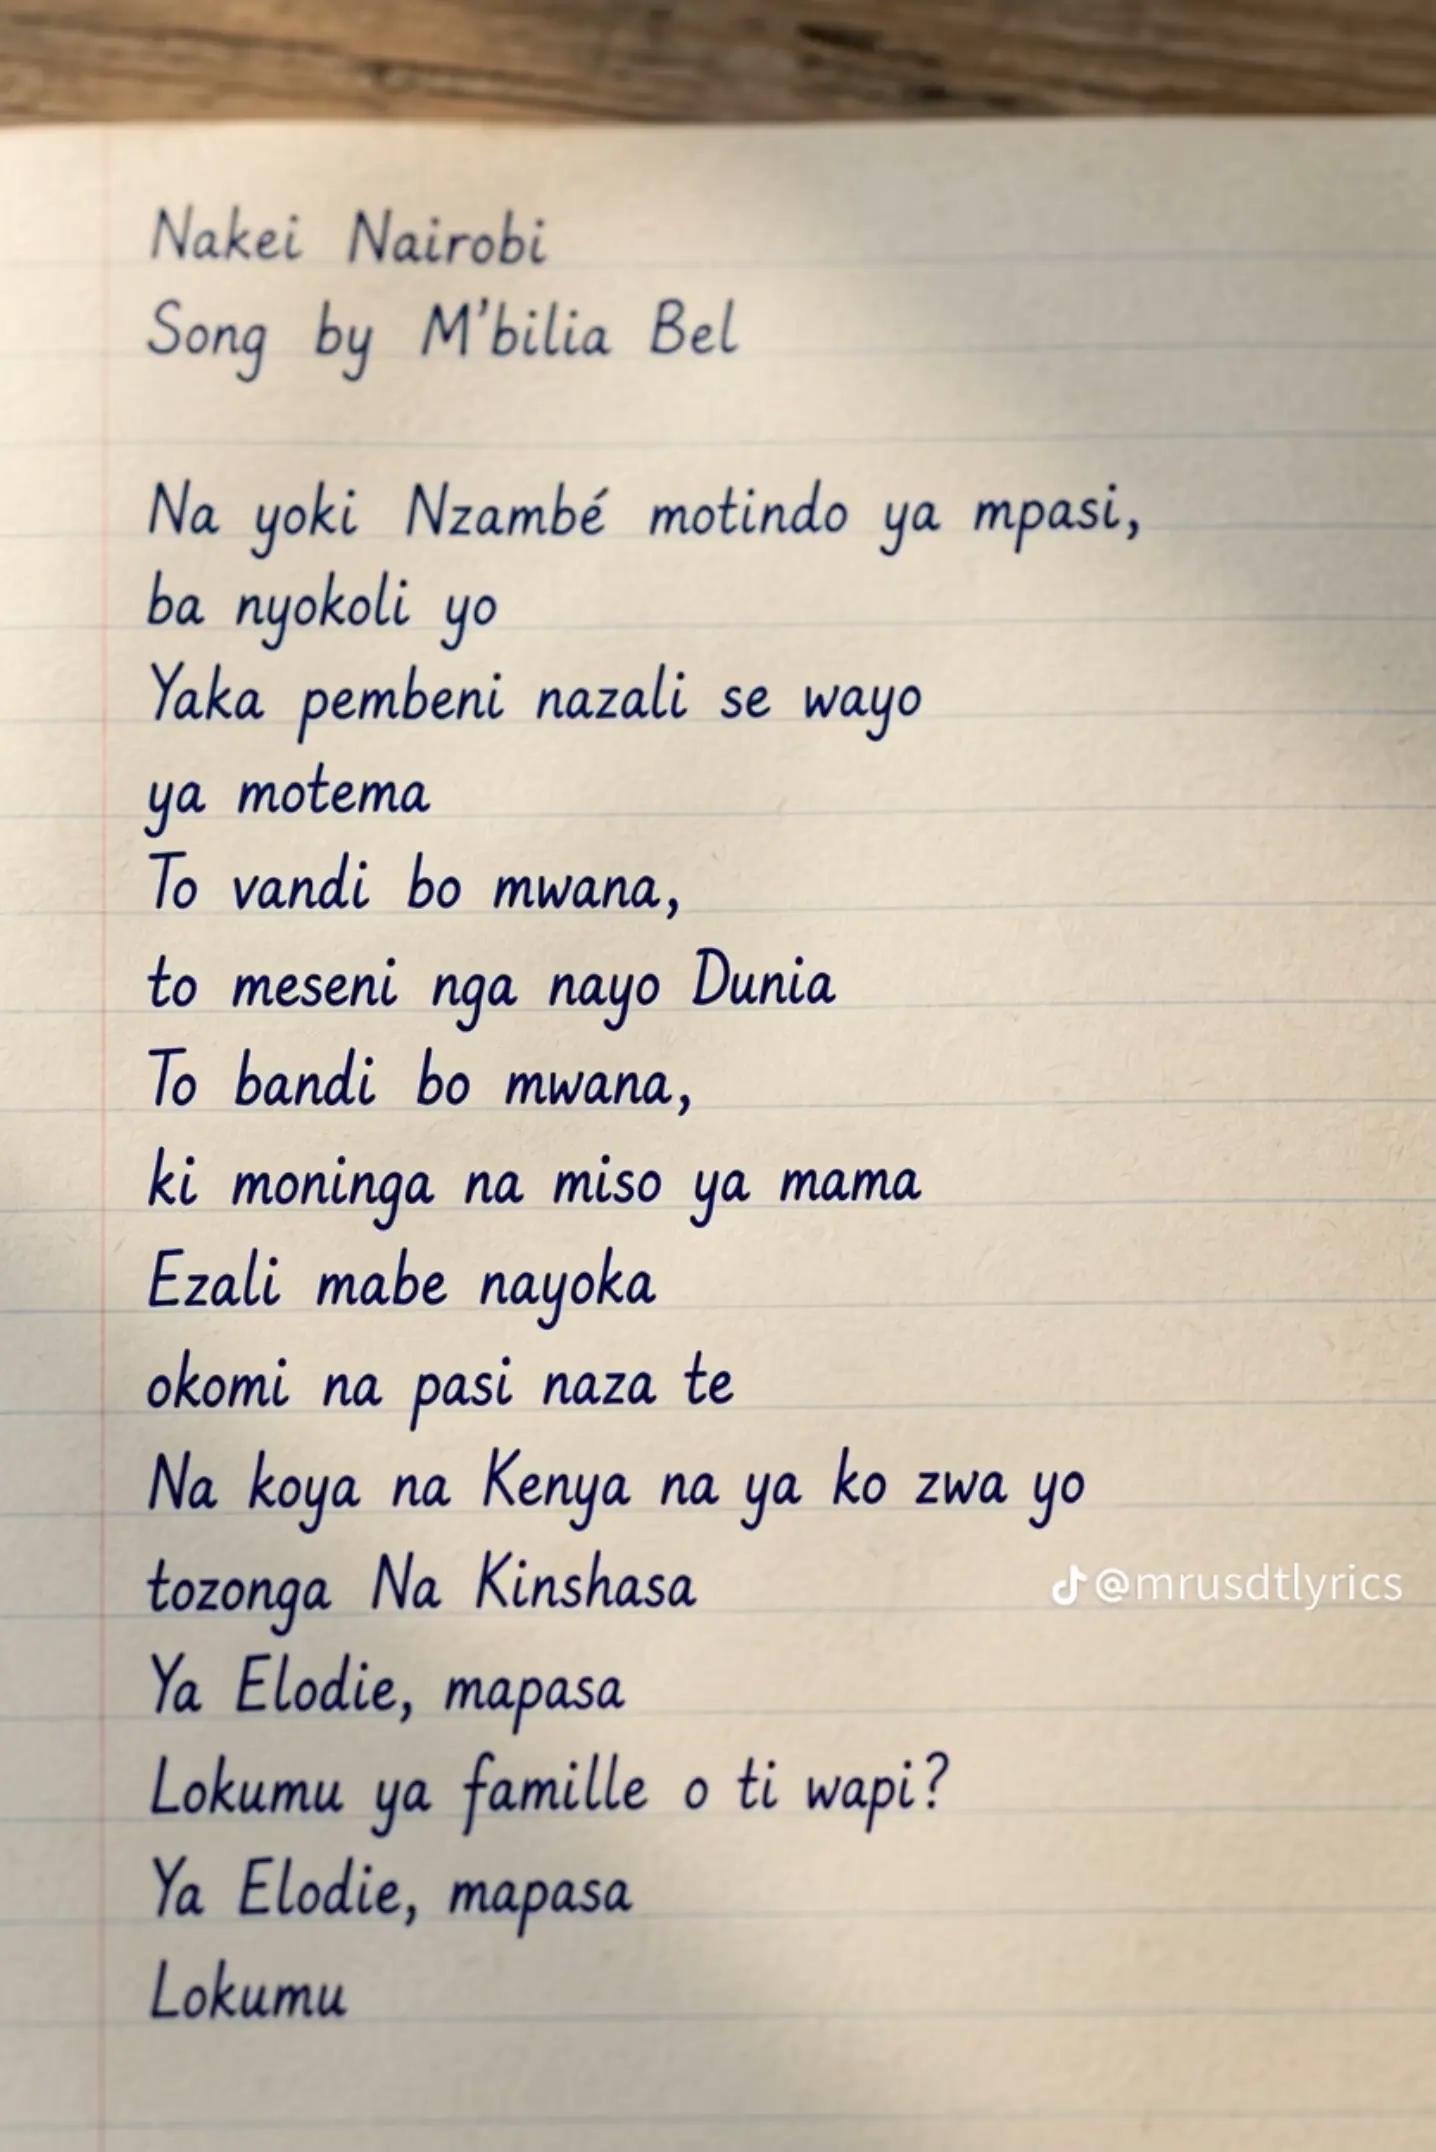 Nakei Nairobi
Song by M'bilia Bel
Na yoki Nzambé motindo ya mpasi,
ba nyokoli yo
Yaka pembeni nazali se wayo
ya motema
To vandi bo mwana,
to meseni nga nayo Dunia
To bandi bo mwana,
ki moninga na miso ya mama
Ezali mabe nayoka
okomi na pasi naza te
Na koya na Kenya na ya ko zwa yo
tozonga Na Kinshasa
@mrusdtlyrics
Ya Elodie, mapasa
Lokumu ya famille o ti wapi?
Ya Elodie, mapasa
Lokumu